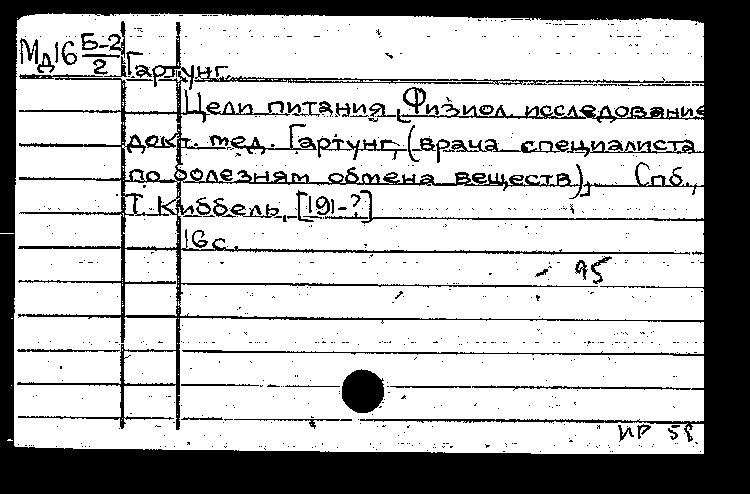 Мд16 Б-2/2 Гартунг.
Цели питания [Физиол. исследование
докт. мед. Гартунг, (врача специалиста
по болезням обмена веществ)]. Спб.,
Т. Киббель, [191-?]
16 с.
95
ИР 58